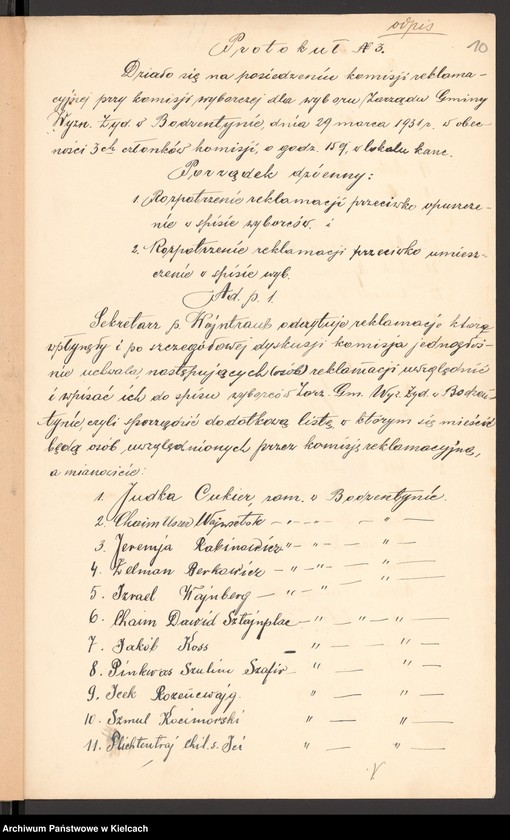 odpis
10
Protokuł № 3.
Działo się na posiedzeniu komisji reklama-
cyjnej przy komisji wyborczej dla wyboru Zarządu Gminy
Wyzn. Żyd. w Bodzentynie, dnia 29 marca 1931 r. w obec-
ności 3ch członków komisji, o godz. 15g, w lokalu kanc.
Porządek dzienny:
1. Rozpatrzenie reklamacji przeciwko opuszcze-
nie w spisie wyborców. i
2. Rozpatrzenie reklamacji przeciwko umiesz-
czenie w spisie wyb.
Ad. p. 1.
Sekretarz p. Wajntraub odczytuje reklamacje które
wpłynęły i po szczegółowej dyskusji komisja jednogłoś-
nie uchwala, następujących (osób) reklamacji uwzględnić
i wpisać ich do spisu wyborców Zarz. Gm. Wyz. Żyd. w Bodzen-
tynie, czyli sporządzić dodatkową listę, w którym się mieścić
będą osób, uwzględnionych przez komisję reklamacyjną,
a mianowicie:
1. Judka Cukier, zam. w Bodzentynie.
2. Chaim Uszer Wajnsztok — " — " — " —
3. Jeremja Rabinowicz " — " — " —
4. Zelman Berkowicz — " — " — " —
5. Izrael Wajnberg — " — " — " —
6. Chaim Dawid Sztajnplac — " — " — " —
7. Jakób Koss " — " —
8. Pinkwas Szulim Szafir — " — " —
9. Icek Rozencwajg. " — " —
10. Szmul Kocimorski " — " —
11. Plichtentraj chil. s. " — " —